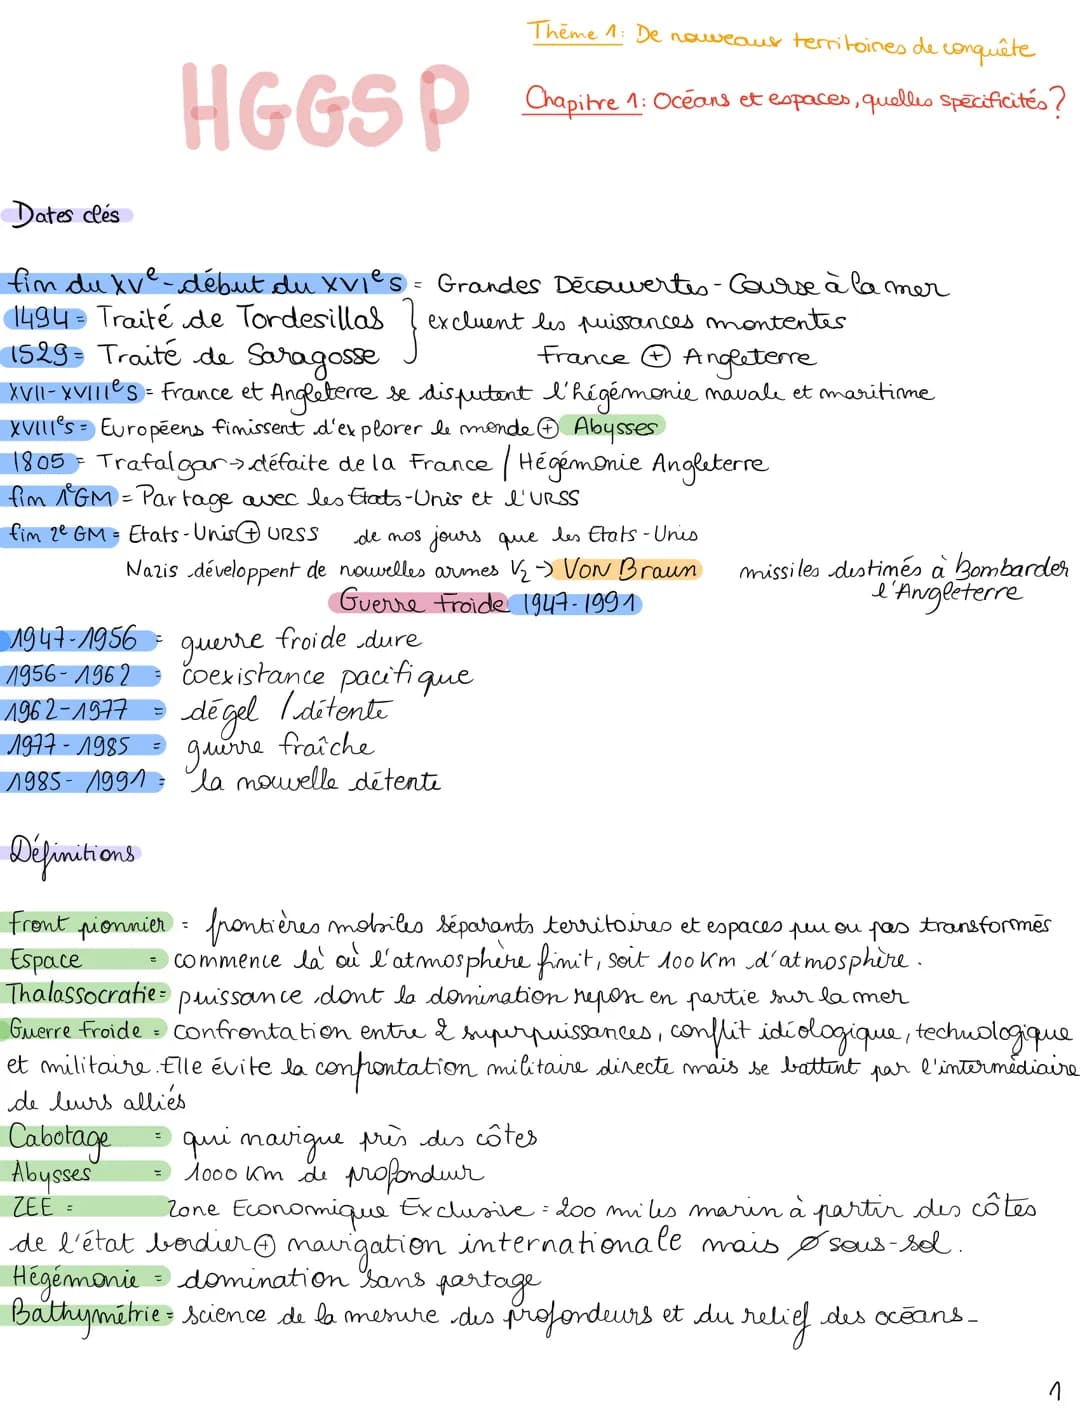 Thème 1: De nouveaux territoires de conquête
HGGSP
Chapitre 1: Océans et espaces, quelles spécificités?
Dates clés
fin du XVe - début du XVIes = Grandes Découvertes - Course à la mer
1494 = Traité de Tordesillas } excluent les puissances montentes
1529 = Traité de Saragosse France ⊕ Angleterre
XVII-XVIIIes = France et Angleterre se disputent l'hégémonie navale et maritime
XVIIIes = Européens finissent d'explorer le monde ⊕ Abysses
1805 = Trafalgar → défaite de la France / Hégémonie Angleterre
fin 1eGM = Partage avec les Etats-Unis et l'URSS
fin 2e GM = Etats-Unis ⊕ URSS de nos jours que les Etats-Unis
Nazis développent de nouvelles armes V2 → Von Braun missiles destinés à Bombarder l'Angleterre
Guerre froide 1947-1991
1947-1956 = guerre froide dure
1956-1962 = coexistance pacifique
1962-1977 = dégel / détente
1977-1985 = guerre fraîche
1985-1991 = la nouvelle détente
Définitions
Front pionnier = frontières mobiles séparants territoires et espaces peu ou pas transformés
Espace = commence là où l'atmosphère finit, soit 100 km d'atmosphère.
Thalassocratie = puissance dont la domination repose en partie sur la mer
Guerre froide = confrontation entre 2 superpuissances, conflit idéologique, technologique
et militaire. Elle évite la confrontation militaire directe mais se battent par l'intermédiaire
de leurs alliés
Cabotage = qui navigue près des côtes
Abysses = 1000 km de profondeur
ZEE = Zone Economique Exclusive = 200 miles marin à partir des côtes
de l'état bordier ⊕ navigation internationale mais ∅ sous-sol.
Hégémonie = domination sans partage
Bathymétrie = science de la mesure des profondeurs et du relief des océans -
1